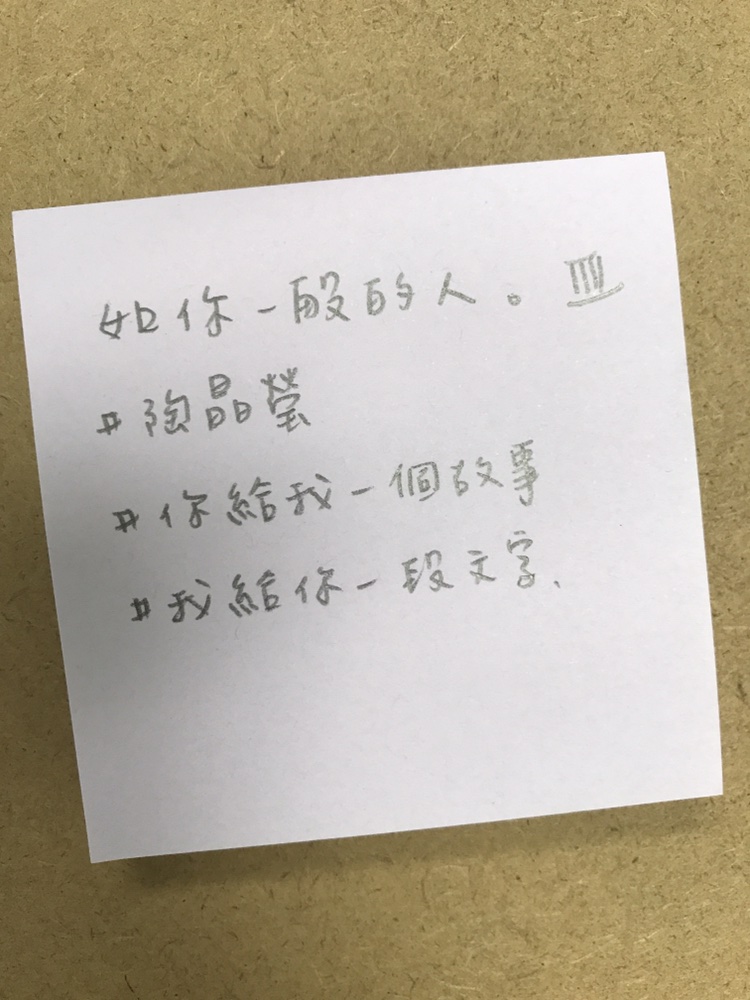 如你一般的人。
#陶晶瑩
#你給我一個故事
#我給你一段文字、